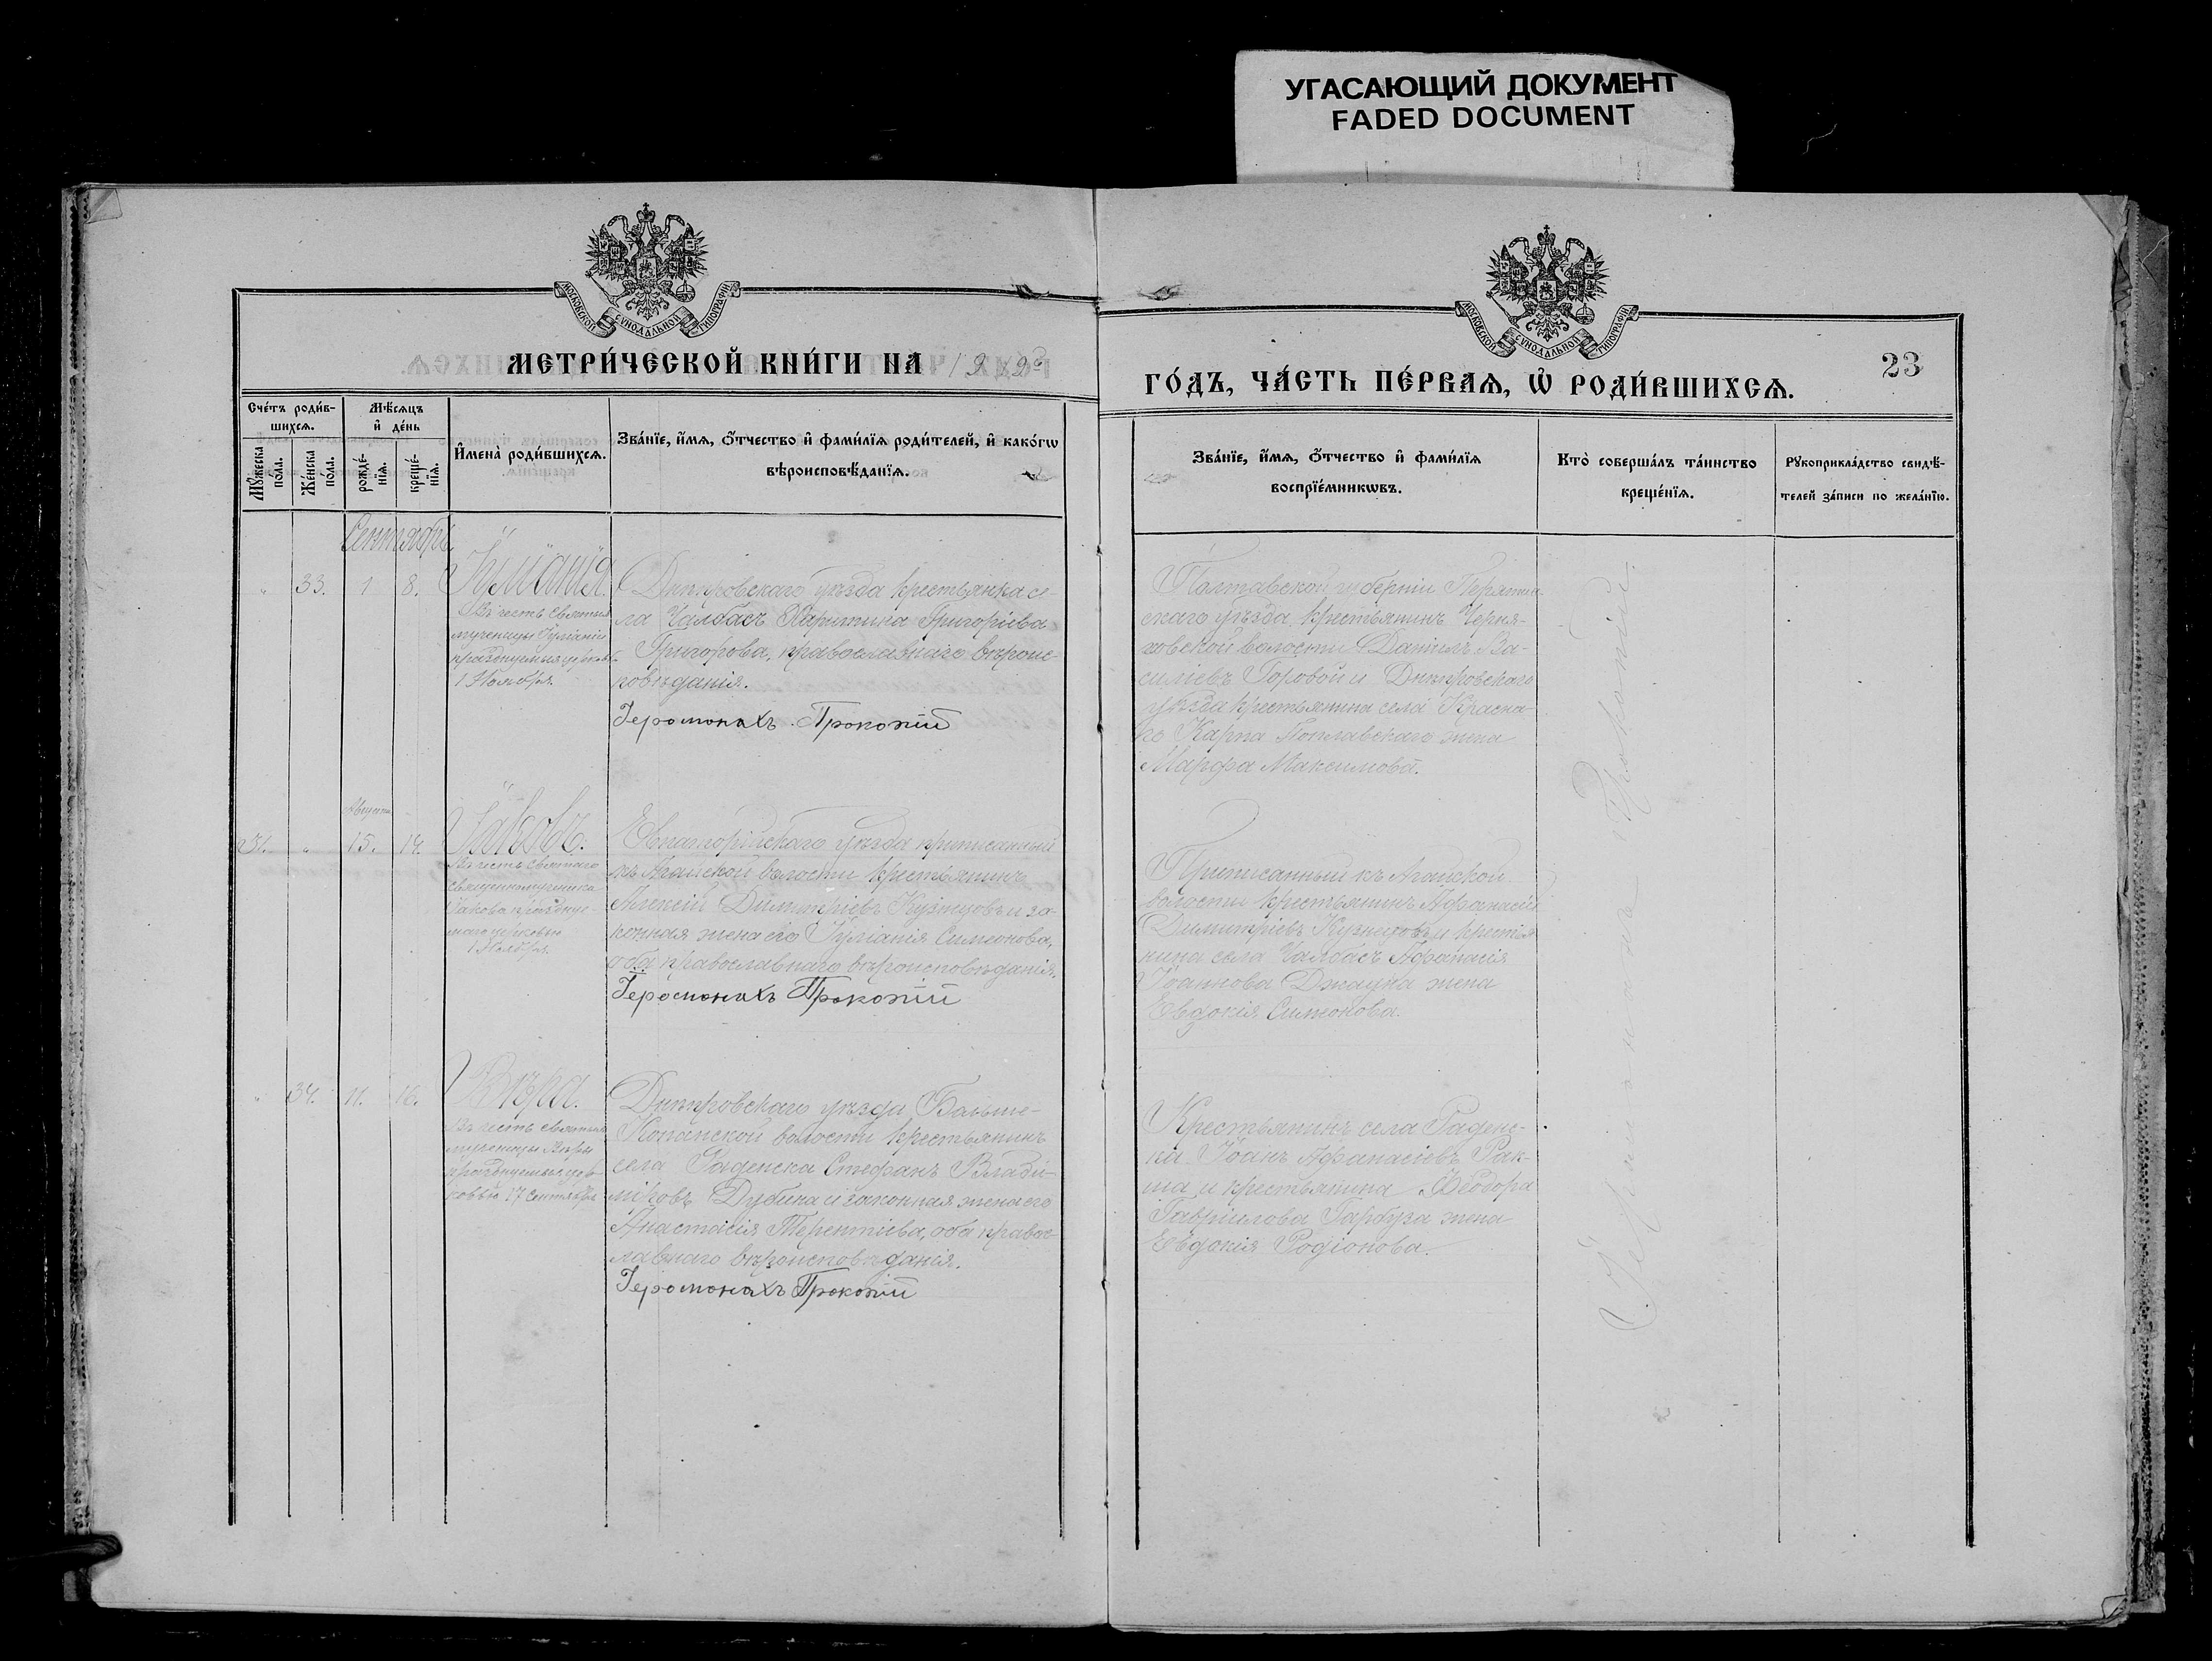 УГАСАЮЩИЙ ДОКУМЕНТ
FADED DOCUMENT
МОСКОВСКОЙ СѴНОДАЛЬНОЙ ТИПОГРАФІИ
МЕТРИ́ЧЕСКОЙ КНИ́ГИ НА
Сче́тъ роди́в-
шихсѧ.
Мꙋ́жеска
по́ла.
Же́нска
по́ла.
Мѣ́сѧцъ
и҆ де́нь
рожде́-
нїѧ.
креще́-
нїѧ.
И҆мена̀ роди́вшихсѧ.
Зва́нїе, и҆́мѧ, ѻ҆́тчество и҆ фами́лїѧ роди́телей, и҆ како́гѡ
вѣроисповѣ́данїѧ.
Сентябрь
" 33. 1 8.
Іуліанія.
Въ честь святыя
мученицы Іуліаніи
празднуемыя церков.
1 Ноября.
Днѣпровскаго уѣзда крестьянка се-
ла Чалбасъ Харитина Григоріева
Григорова, православнаго вѣроис-
повѣданія.
Іеромонахъ Прокопій
Августа
31. " 15. 14.
Іаковъ.
Въ честь святаго
священномученика
Іакова празднуе-
маго церковью
1 Ноября.
Евпаторійскаго уѣзда приписанный
къ Агайской волости крестьянинъ
Алексій Димитріевъ Кузнецовъ и за-
конная жена его Іуліанія Симеонова,
оба православнаго вѣроисповѣданія.
Іеромонахъ Прокопій
" 34. 11. 16.
Вѣра.
Въ честь святыя
мученицы Вѣры
празднуемыя цер-
ковью 17 Сентября
Днѣпровскаго уѣзда Больше-
Копанской волости крестьянинъ
села Раденска Стефанъ Влади-
міровъ Дубина и законная жена его
Анастасія Терентіева, оба правос-
лавнаго вѣроисповѣданія.
Іеромонахъ Прокопій
МОСКОВСКОЙ СѴНОДАЛЬНОЙ ТИПОГРАФІИ
23
ГО́ДЪ, ЧА́СТЬ ПЕ́РВАѦ, Ѡ҆ РОДИ́ВШИХСѦ.
Зва́нїе, и҆́мѧ, ѻ҆́тчество и҆ фами́лїѧ
воспрїе́мникѡвъ.
Кто̀ соверша́лъ та́инство
креще́нїѧ.
Рꙋкоприкла́дство свидѣ́-
телей за́писи по жела́нїю.
Полтавской губерніи Пирятин-
скаго уѣзда, крестьянинъ Черня-
ховской волости Даніилъ Ва-
силіевъ Горовой и Днѣпровскаго
уѣзда крестьянина села Красна-
го Карпа Поплавскаго жена
Марфа Максимова.
Приписанный къ Агайской
волости крестьянинъ Афанасій
Димитріевъ Кузнецовъ и крестья
нина села Чалбасъ Афанасія
Іоаннова жена
Евдокія Симеонова.
Крестьянинъ села Раденс-
ка Іоанъ Афанасіевъ Рак-
ша и крестьянина Ѳеодора
Гавріилова Гарбуза жена
Евдокія Родіонова.
Іеромонахъ Прокопій.